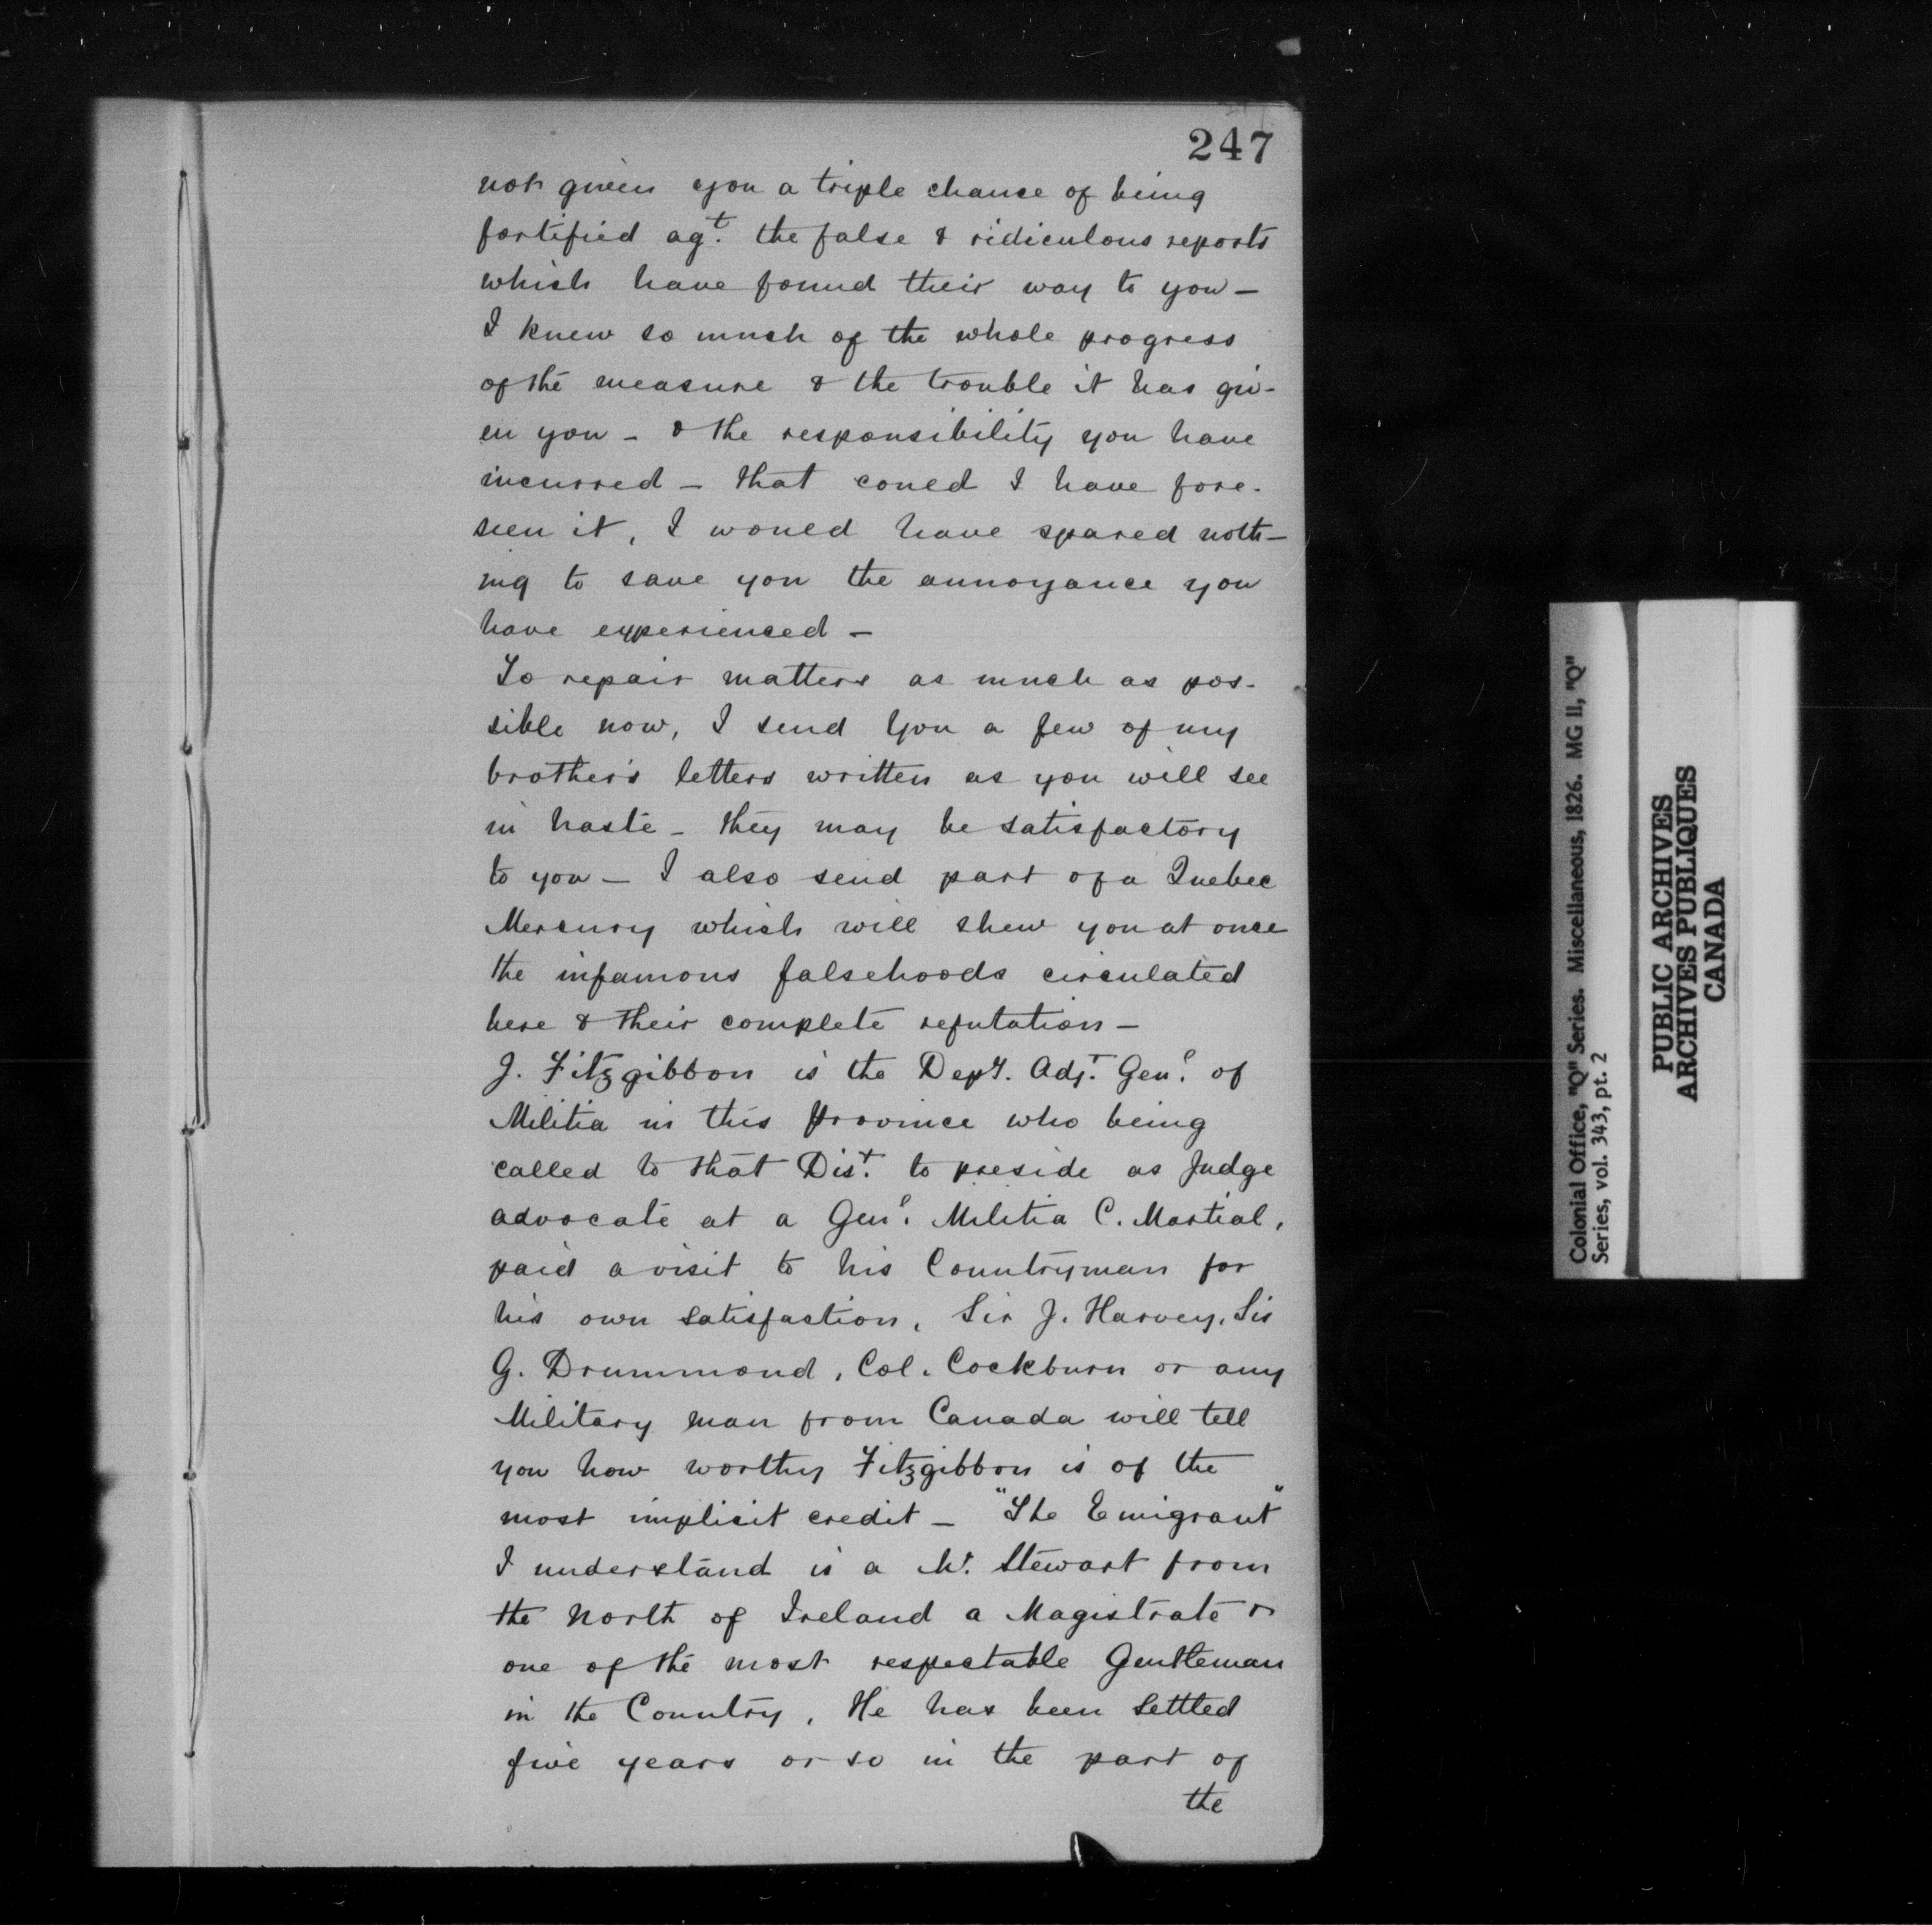 247
not given you a triple chance of being
fortified agt. the false & ridiculous reports
which have found their way to you —
I knew so much of the whole progress
of the measure & the trouble it has giv-
en you - & the responsibility you have
incurred - that could I have fore-
seen it, I would have spared noth-
ing to save you the annoyance you
have experienced —
To repair matters as much as pos-
sible now, I send you a few of my
brother's letters written as you will see
in haste - they may be satisfactory
to you — I also send part of a Quebec
Mercury which will shew you at once
the infamous falsehoods circulated
here & their complete refutation —
J. Fitzgibbon is the Depy. Adjt. Genl. of
Militia in this Province who being
called to that Dist. to preside as Judge
advocate at a Genl. Militia C. Martial,
paid a visit to his Countryman for
his own satisfaction, Sir J. Harvey, Sir
G. Drummond, Col. Cockburn or any
Military man from Canada will tell
you how worthy Fitzgibbon is of the
most implicit credit — "The Emigrant"
I understand is a Mr. Stewart from
the North of Ireland a Magistrate &
one of the most respectable Gentleman
in the Country, He has been settled
five years or so in the part of
the
Colonial Office, "Q" Series. Miscellaneous, 1826. MG 11, "Q"
Series, vol. 343, pt. 2
PUBLIC ARCHIVES
ARCHIVES PUBLIQUES
CANADA